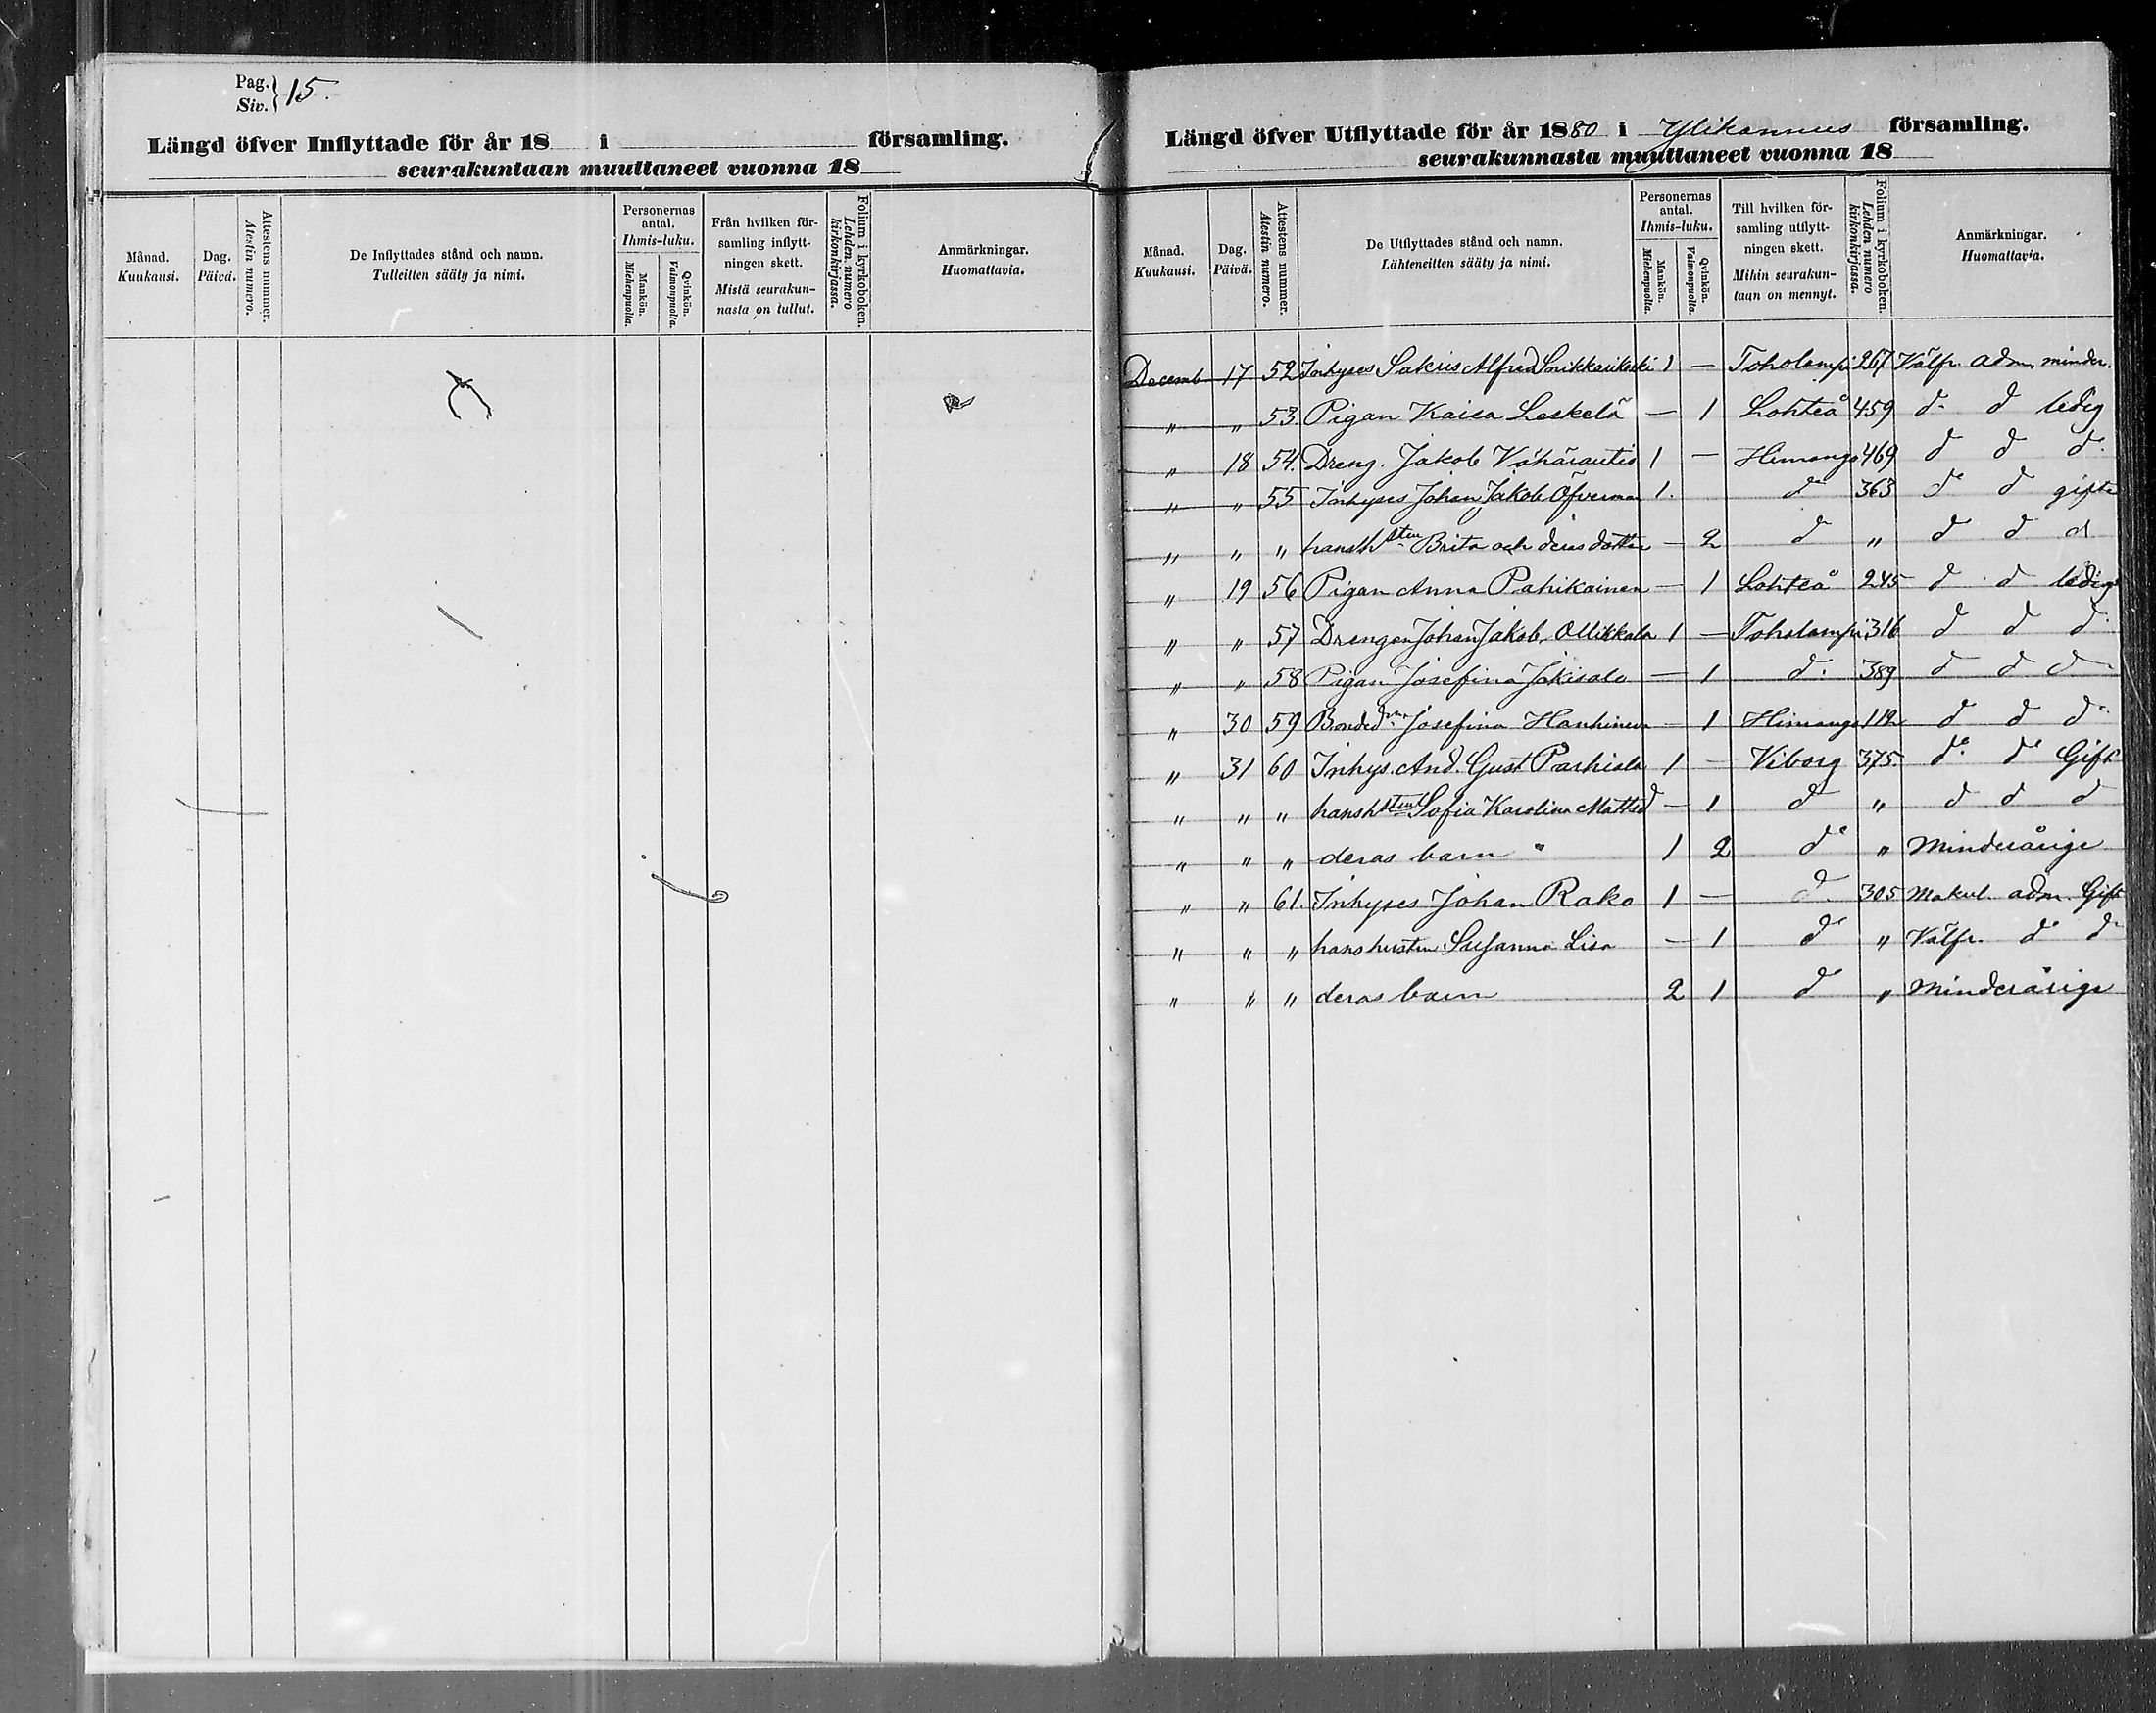 Pag. Siv. } 15.
Längd öfver Inflyttade för år 18 i församling.
seurakuntaan muuttaneet vuonna 18
Månad. Kuukausi.
Dag. Päivä.
Attestens nummer. Atestin numero.
De Inflyttades stånd och namn. Tulleitten sääty ja nimi.
Personernas antal. Ihmis-luku.
Mankön. Miehenpuolia.
Qvinkön. Vaimonpuolia.
Från hvilken för-
samling inflytt-
ningen skett.
Mistä seurakun-
nasta on tullut.
Folium i kyrkoboken. Lehden numero kirkonkirjassa.
Anmärkningar. Huomattavia.
Längd öfver Utflyttade för år 1880 i Ylikannus församling.
seurakunnasta muuttaneet vuonna 18
Månad. Kuukausi.
Dag. Päivä.
Attestens nummer. Atestin numero.
De Utflyttades stånd och namn. Lähteneitten sääty ja nimi.
Personernas antal. Ihmis-luku.
Mankön. Miehenpuolia.
Qvinkön. Vaimonpuolia.
Till hvilken för-
samling utflytt-
ningen skett.
Mihin seurakun-
taan on mennyt.
Folium i kyrkoboken. Lehden numero kirkonkirjassa.
Anmärkningar. Huomattavia.
Decemb 17 52 Inhyses Sakris Alfred 1 — Toholampi 267 Välfr. adm. minder.
" " 53. Pigan Kaisa Leskelä — 1 Lohteå 459 d. d ledig
" 18 54. Dreng. Jakob Vähärautio 1 — Himango 469 d d d
" " 55 Inhyses Johan Jakob Öfverman 1. d 363 d d gifte
" " " hans hstru Brita och deras dotter — 2 d " d d d
" 19 56 Pigan Anna Pahikainen — 1 Lohteå 245 d d ledig
" " 57 Drengen Johan Jakob Ollikkala 1 — Toholampi 316 d d d
" " 58 Pigan Josefina Jokisalo — 1 d. 389 d d d
" 30 59 Josefina — 1 Himango 112 d d d
" 31 60 Inhys. And. Gust Parhiala 1 — Viborg 375. d. d Gift
" " " hans hstru Sofia Karolina Mattsd — 1 d " d d d
" " " deras barn " 1 2 d " Minderårige
" " 61. Inhyses Johan Rako 1 — d. 305 adm. Gift
" " " hans hustru Susanna Lisa — 1 d " Välfr. d d
" " " deras barn 2 1 d " Minderårige